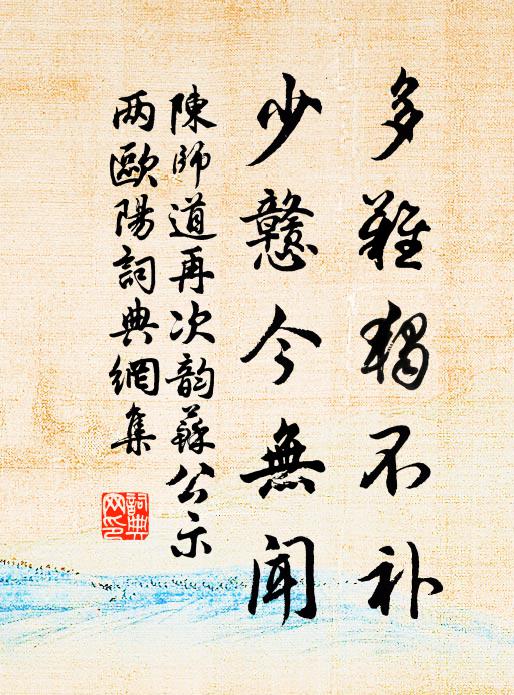 多難獨不补
少戇今無聞
陳師道再次韵蘇公示
两歐陽詞典網集
詞典网印